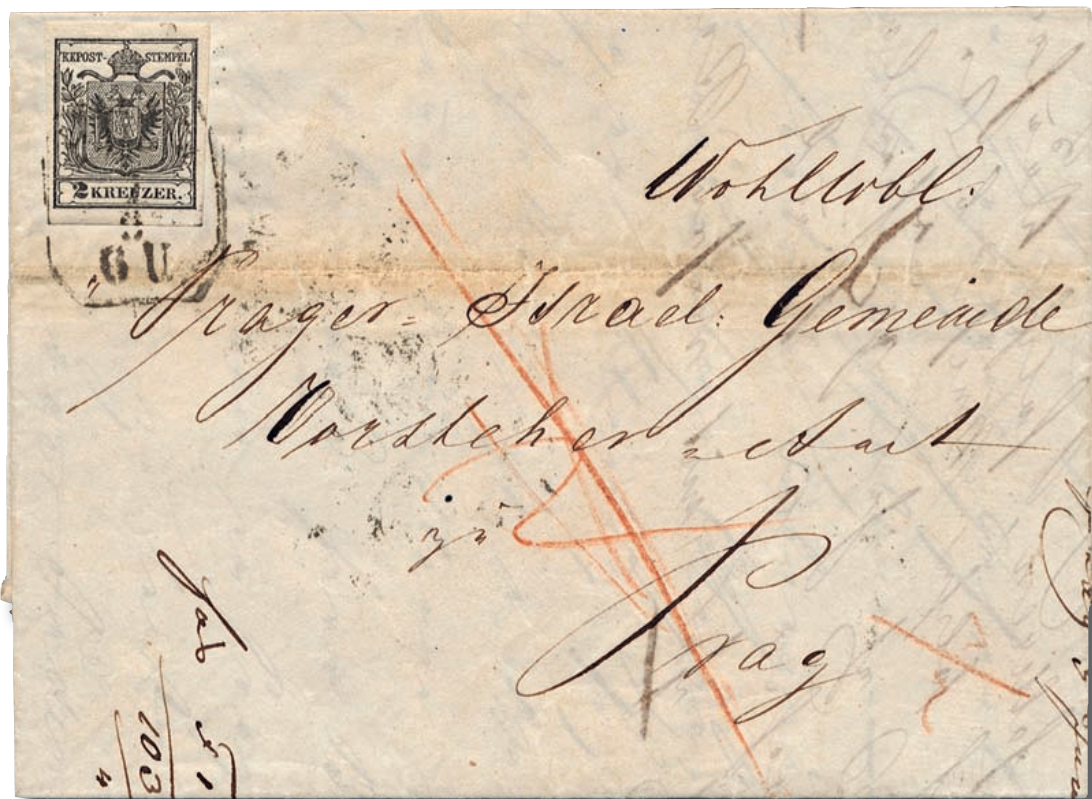 KKPOST-STEMPEL
2 KREUZER.
GÜ
Wohllöbl:
Prager= Israel: Gemeinde
Vorsteher= Amt
zu
Prag
103